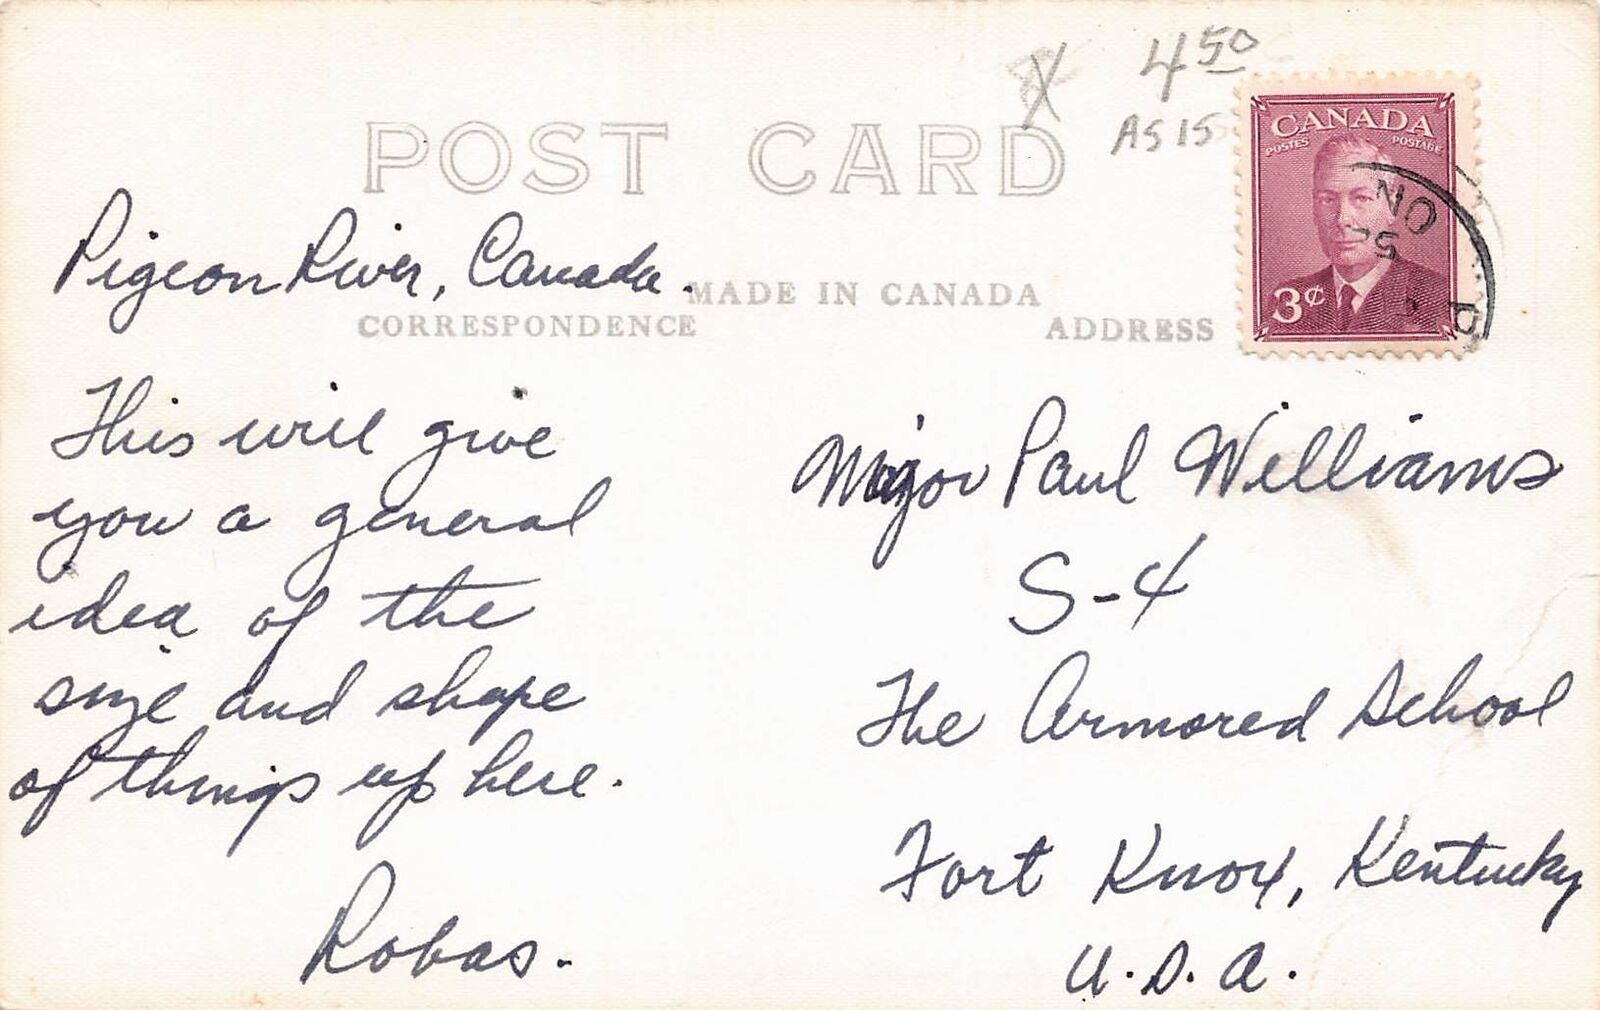 4 50
AS 15
POST CARD
CANADA
POSTES POSTAGE
3¢
Pigeon River, Canada.
MADE IN CANADA
CORRESPONDENCE
ADDRESS
This will give
you a general
idea of the
size and shape
of things up here.
Robas.
Major Paul Williams
S-4
The Armored School
Fort Knox, Kentucky
U.S.A.